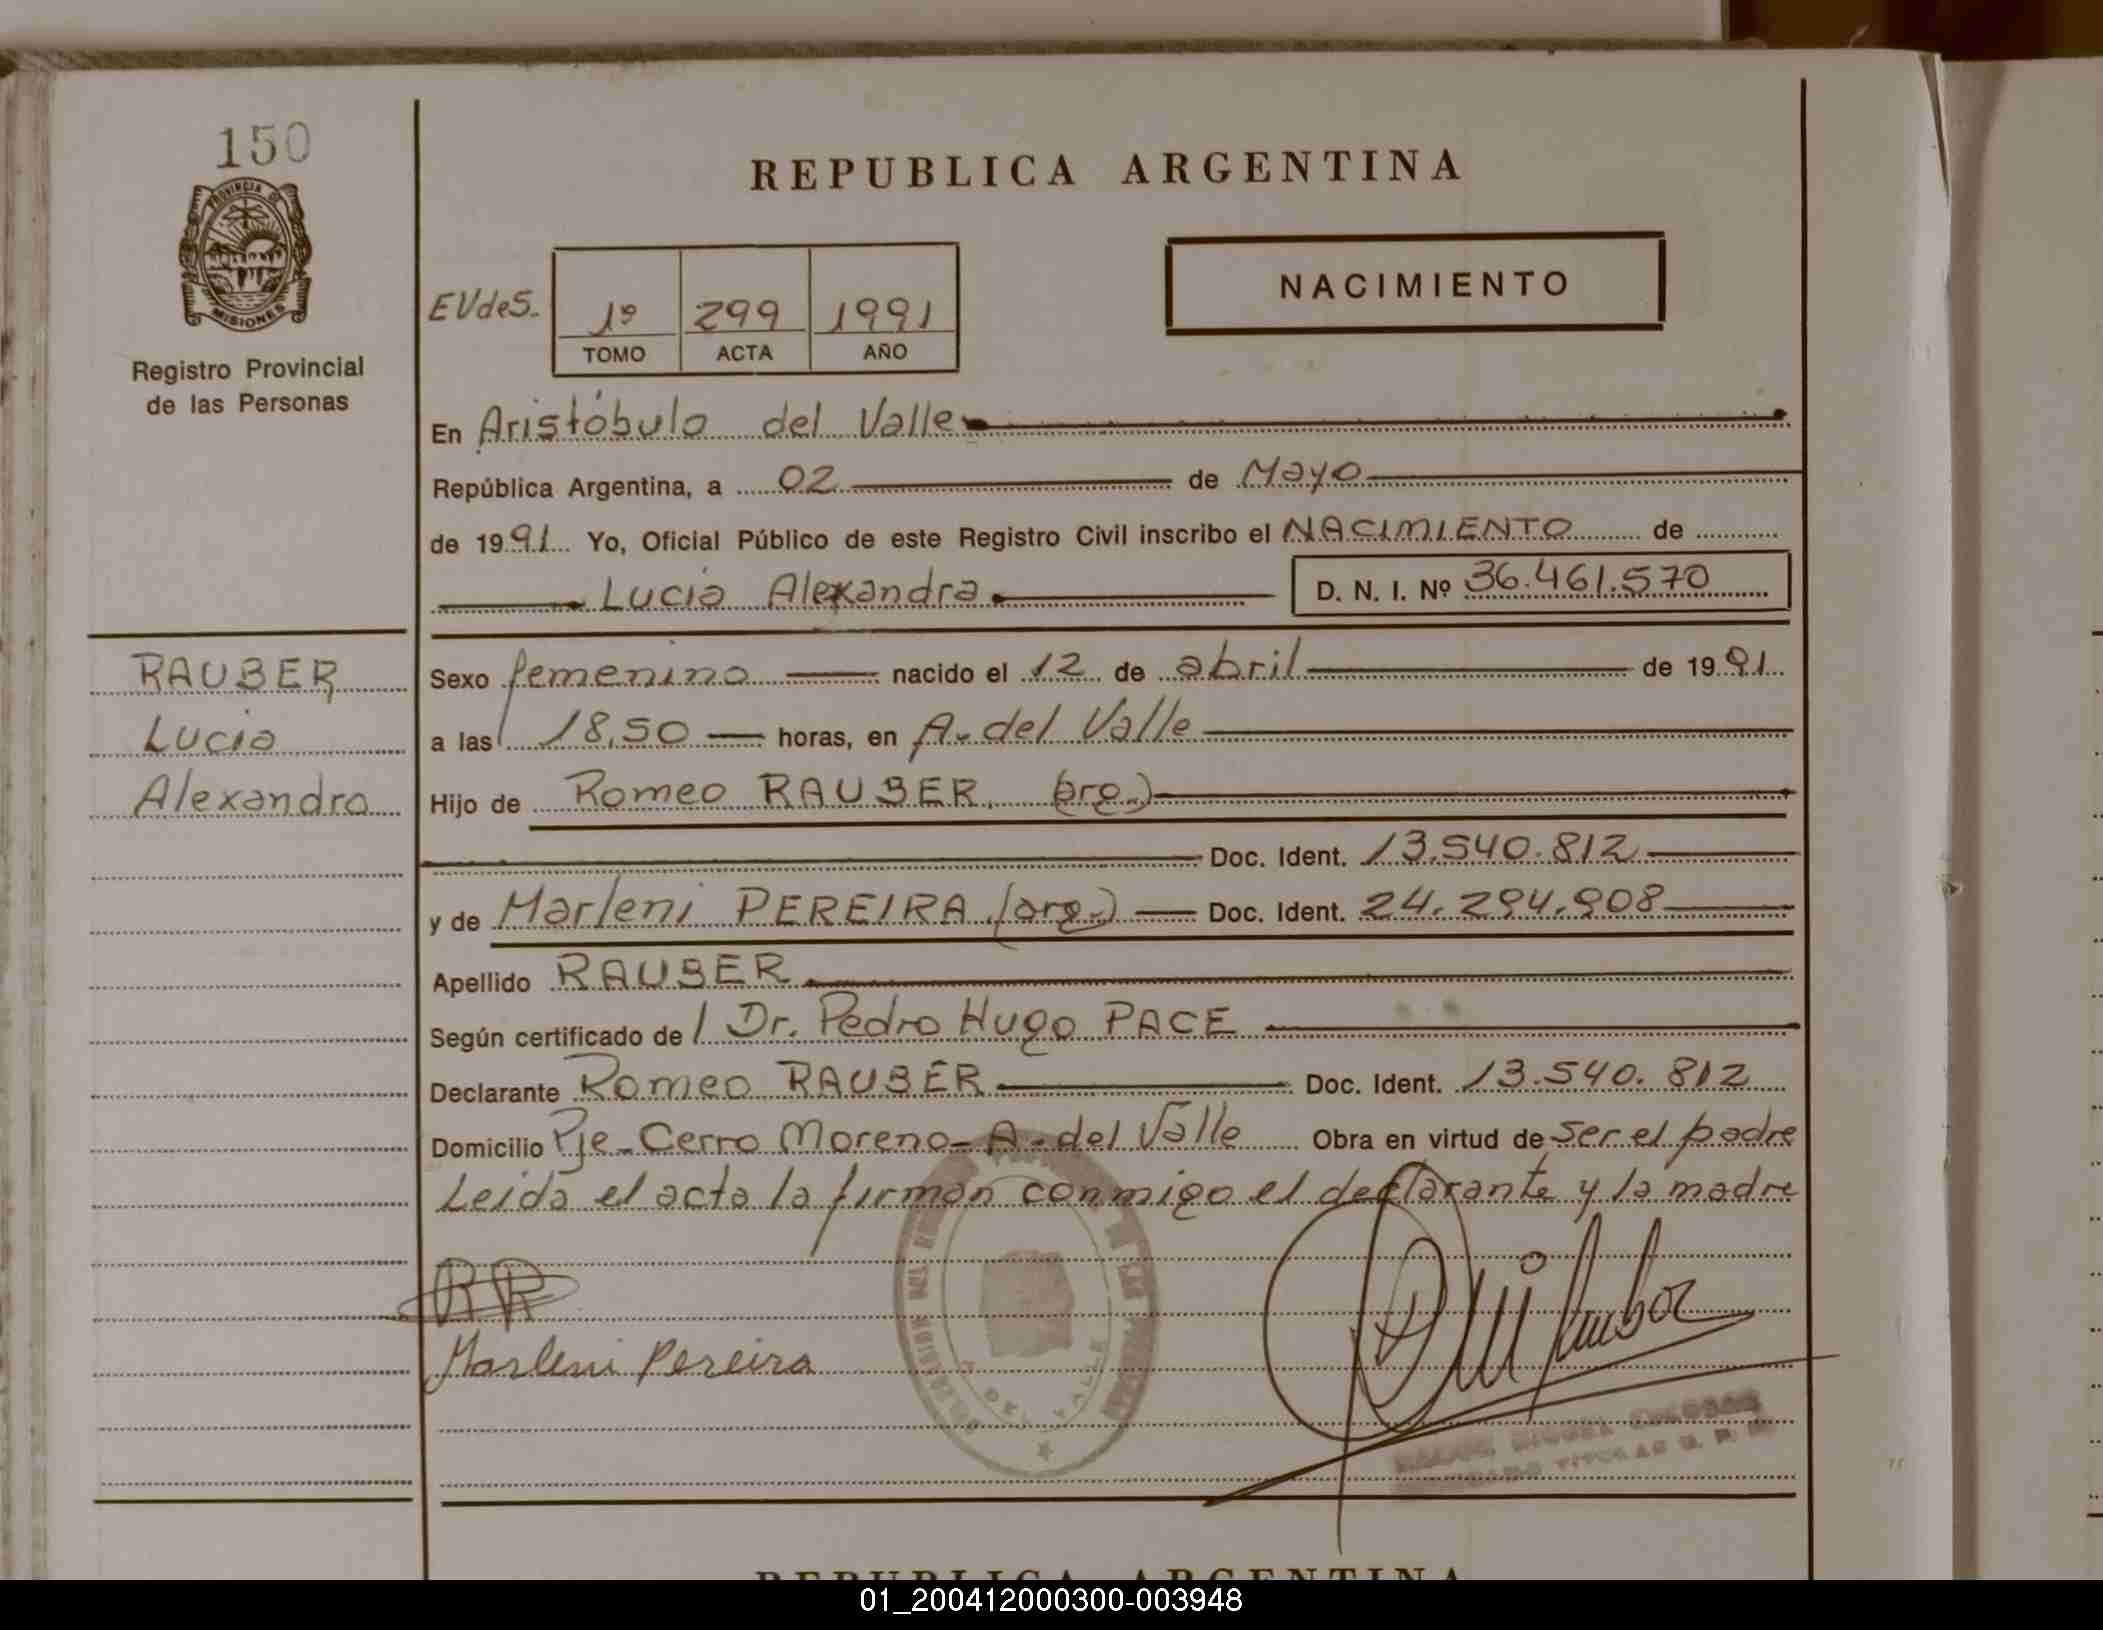 150
PROVINCIA DE
MISIONES
Registro Provincial
de las Personas
REPUBLICA ARGENTINA
NACIMIENTO
EVdeS.
1º 299 1991
TOMO ACTA AÑO
En Aristóbulo del Valle
República Argentina, a 02 de Mayo
de 1991 Yo, Oficial Público de este Registro Civil inscribo el NACIMIENTO de
Lucia Alexandra D. N. I. Nº 36.461.570
RAUBER
Lucia
Alexandra
Sexo femenino nacido el 12 de abril de 1991
a las 18,50 horas, en A. del Valle
Hijo de Romeo RAUBER (arg.)
Doc. Ident. 13.540.812
y de Marleni PEREIRA (arg.) Doc. Ident. 24.294.908
Apellido RAUBER
Según certificado de Dr. Pedro Hugo PACE
Declarante Romeo RAUBER Doc. Ident. 13.540.812
Domicilio Pje- Cerro Moreno- A. del Valle Obra en virtud de ser el padre
Leida el acta la firman conmigo el declarante y la madre
RR
Marleni Pereira
DEL VALLE
REPUBLICA ARGENTINA
01_200412000300-003948